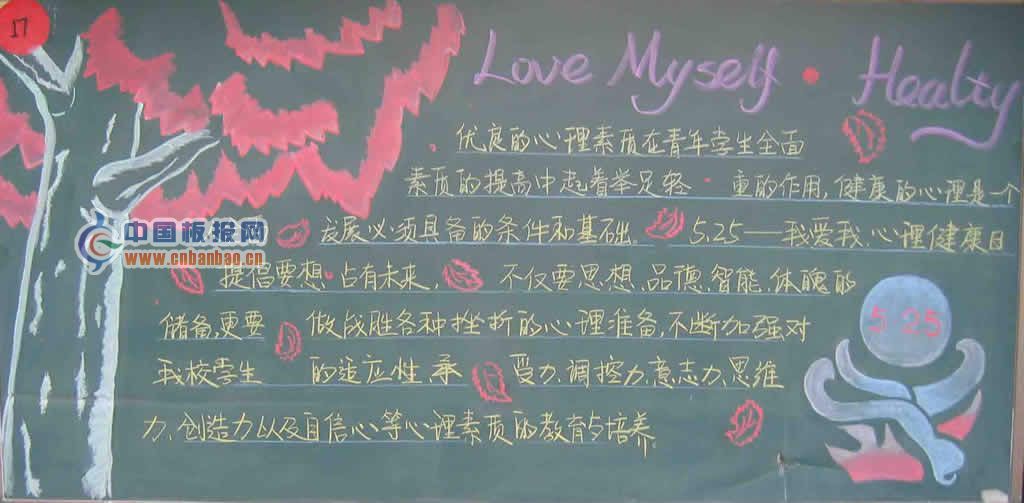 17
Love Myself · Healty
优良的心理素质在青年学生全面
素质的提高中起着举足轻·重的作用,健康的心理是一个
发展必须具备的条件和基础。 5.25——我爱我,心理健康日
中国板报网
www.cnbanbao.cn
提倡要想 占有未来, 不仅要思想、品德、智能、体魄的
储备,更要 做战胜各种挫折的心理准备,不断加强对
5 25
我校学生 的适应性、承 受力、调控力、意志力、思维
力、创造力以及自信心等心理素质的教育与培养。